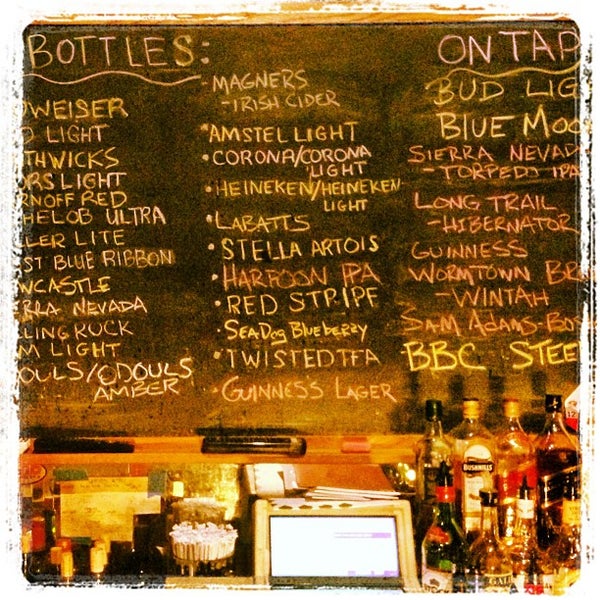 BOTTLES:
WEISER
LIGHT
THWICKS
RS LIGHT
RNOFF RED
HELOB ULTRA
LER LITE
ST BLUE RIBBON
WCASTLE
RRA NEVADA
LING ROCK
M LIGHT
OULS/ODOULS
AMBER
- MAGNERS
- IRISH CIDER
• AMSTEL LIGHT
• CORONA/CORONA
LIGHT
• HEINEKEN/HEINEKEN
LIGHT
• LABATTS
• STELLA ARTOIS
• HARPOON IPA
• RED STRIPE
• SEADOG BLUEBERRY
• TWISTED TEA
• GUINNESS LAGER
ON TAP
BUD LIG
BLUE MOO
SIERRA NEVAD
- TORPEDO IPA
LONG TRAIL
- HIBERNATOR
GUINNESS
WORMTOWN BR
- WINTAH
SAM ADAMS-BO
BBC STEE
BUSHMILLS